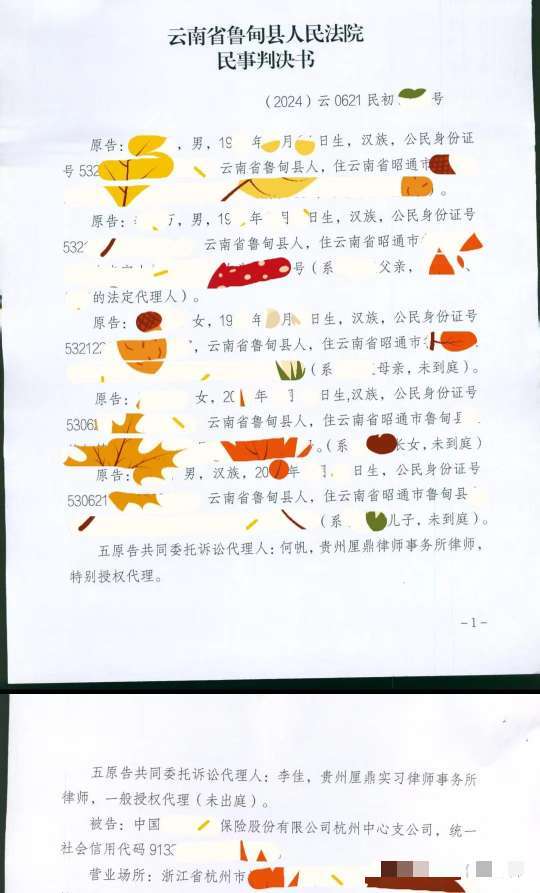 云南省鲁甸县人民法院
民事判决书
（2024）云 0621 民初 号
原告： ，男，19 年 月 日生，汉族，公民身份证
号 532 云南省鲁甸县人，住云南省昭通市
。
原告： 万，男，19 年 月 日生，汉族，公民身份证号
532 云南省鲁甸县人，住云南省昭通市
号（系 父亲，
的法定代理人）。
原告： 女，19 年 月 日生，汉族，公民身份证号
532122 ，云南省鲁甸县人，住云南省昭通市
（系 母亲，未到庭）。
原告： 女，20 年 日生,汉族，公民身份证号
5306 云南省鲁甸县人，住云南省昭通市鲁甸县
。（系 长女，未到庭）
原告： 男，汉族，20 年 日生，公民身份证号
530621 云南省鲁甸县人，住云南省昭通市鲁甸县
（系 儿子，未到庭）。
五原告共同委托诉讼代理人：何帆，贵州厘鼎律师事务所律师，
特别授权代理。
-1-
五原告共同委托诉讼代理人：李佳，贵州厘鼎实习律师事务所
律师，一般授权代理（未出庭）。
被告：中国 保险股份有限公司杭州中心支公司，统一
社会信用代码 9133 。
营业场所：浙江省杭州市